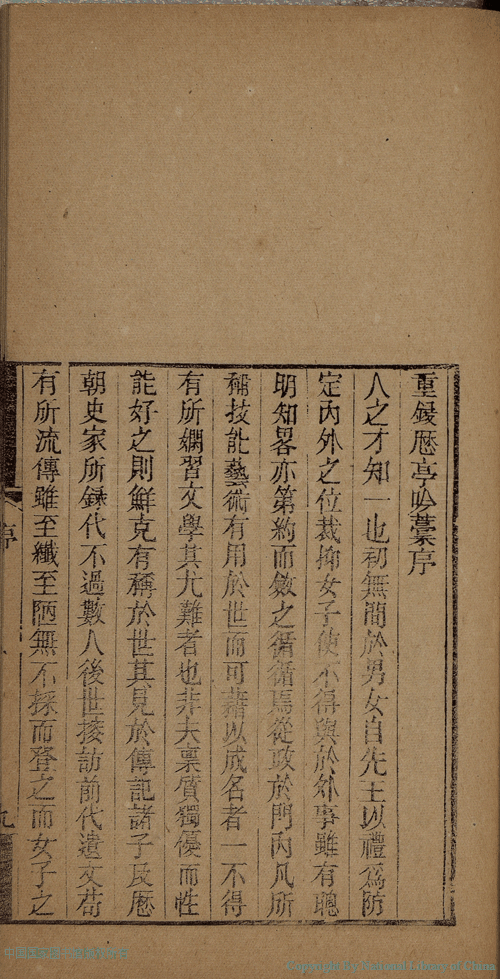 重鋟歷亭吟藁序
人之才知一也初無間於男女自先王以禮為防
定內外之位裁抑女子使不得與於外事雖有聰
明知畧亦第約而斂之循循焉從政於門內凡所
稱技訖藝術有用於世而可藉以成名者一不得
有所嫻習文學其尤難者也非夫稟質獨優而性
能好之則鮮克有稱於世其見於傳記諸子及歷
朝史家所錄代不過數人後世捜訪前代遺文苟
有所流傳雖至纖至陋無不採而登之而女子之
序
九
Copyright by National Library of China